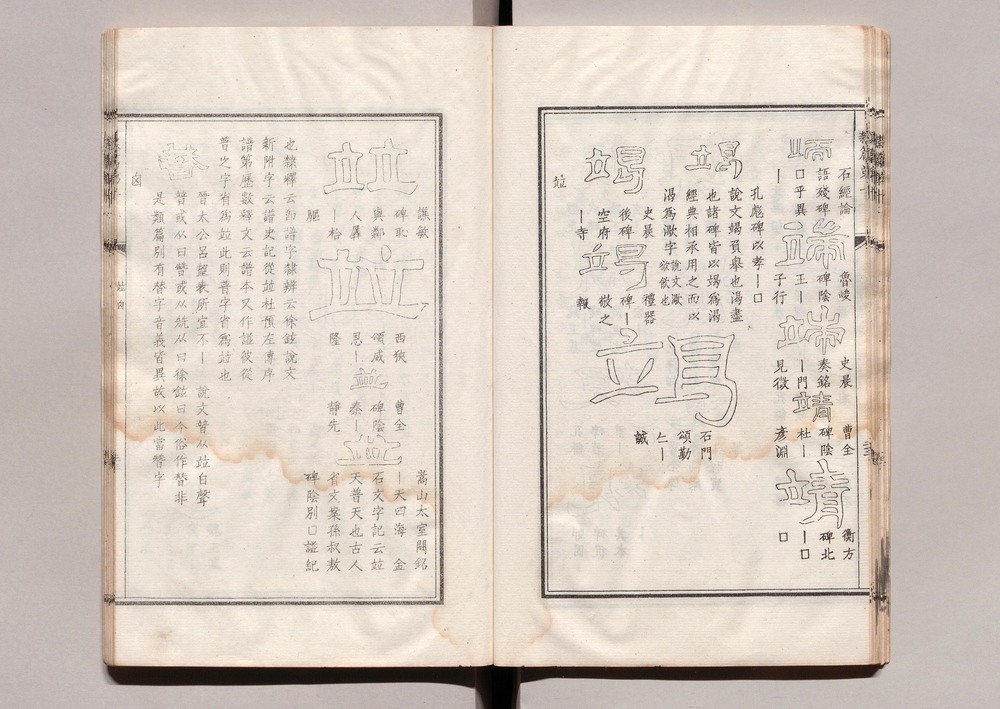 石經論
語殘碑
□乎異
｜
端
魯峻
碑陰
王｜
子行
端
史晨
奏銘
｜門
見徵
靖
曹全
碑陰
杜｜
彦淵
靖
衡方
碑北
｜□
□
竭
孔彪碑以孝｜□
說文竭負舉也渴盡
也諸碑皆以竭爲渴
經典相承用之而以
渴爲㵣字說文㵣
欲飲也
竭
史晨
後碑
空府
｜寺
竭
禮器
碑｜
敬之
報
竭
石門
頌勤
仁｜
誠
竝
竝
譙敏
碑恥
與鄰
人
｜
驅
竝
西狹
頌威
恩｜
隆
並
曹全
碑陰
泰｜
靜先
並
嵩山太室闕銘
｜天四海 金
石文字記云竝
天普天也古人
省文案孫叔敖
碑陰別□謐紀
也隸釋云即譜字隸辨云徐鉉說文
新附字云譜史記從竝杜預左傳序
譜第歷數釋文云譜本又作謐彼從
普之字省爲竝此則普字省爲竝也
晉太公呂望表所宣不｜ 說文朁从竝白聲
朁或从曰朁或从兟从曰徐鉉曰今俗作替非
是類篇別有朁字音義皆異故以此當朁字
囟